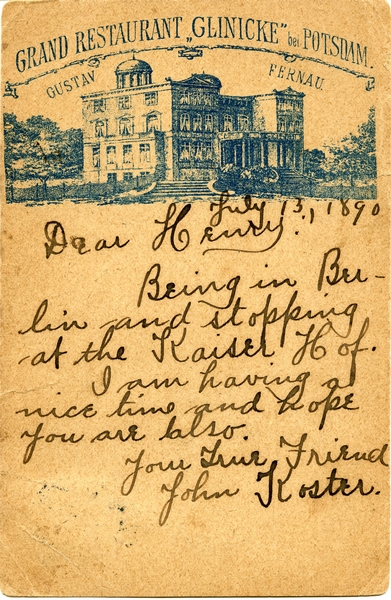 GRAND RESTAURANT „GLINICKE" bei POTSDAM.
GUSTAV FERNAU.
July 13, 1890
Dear Henry.
Being in Ber-
lin and stopping
at the Kaiser Hof.
I am having a
nice time and hope
you are also.
Your True Friend
John Koster.